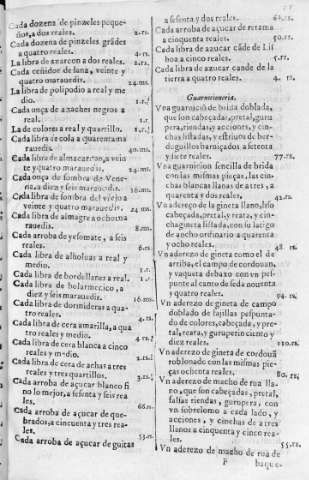 Cada dozena de pinzeles peque-
ños, a dos reales. 2.rs.
Cada dozena de pinzeles grãdes
a quatro reales. 4.rs.
La libra de azarcon a dos reales. 2.rs.
Cada ceñidor de lana, veinte y
quatro marauedis. 24.ms.
La libra de polipodio a real y me
dio. 1.r.½
Cada onça de azaches negros a
real. 1.r.
La de colores a real y quartillo. 1.r.¼
Cada libra de cola a quarenta ma
rauedis. 40.ms.
Cada libra de almazarron, a vein
te y quatro marauedis. 24.ms.
Cada onça de sombra de Vene-
cia, a diez y seis marauedis. 16.ms.
Cada libra de sombra del viejo a
veinte y quatro marauedis. 24.ms.
Cada libra de almagre a ocho ma
rauedis. 8.ms.
Cada arroba de yesomate, a seis
reales. 6.rs.
Cada libra de alholuas a real y
medio.
Cada libra de bordillanas a real. 1.r.
Cada libra de bolarmenico, a
diez y seis marauedis. 16.ms.
Cada libra de dormideras a qua-
tro reales. 4.rs.
Cada libra de cera amarilla, a qua
tro reales y medio. 4.rs.½
Cada libra de cera blanca a cinco
reales y medio.
Cada libra de cera de achas a tres
reales y tres quartillos.
Cada arroba de açucar blanco fi
no lo mejor, a sesenta y seis rea
les. 66.rs.
Cada arroba de açucar de que-
brados, a cincuenta y tres rea-
les. 53.rs.
Cada arroba de açucar de guitas
a sesenta y dos reales. 62.rs.
Cada arroba de azucar de retama
a cinquenta reales. 50.rs.
Cada libra de azucar cãde de Lis
boa a cinco reales. 5.rs.
Cada libra de azucar cande de la
tierra a quatro reales. 4.rs.
Guarnicioneria.
Vna guarnició de brida doblada,
que son cabeçadas, pretal, guru
pera, riendas, y acciones, y cin-
chas listadas, y estriuos de bor-
duguillos barniçados a setenta
y siete reales. 77.rs.
Vna guarnicion sencilla de brida
con las mismas pieças, las cin
chas blancas llanas de a tres, a
quarenta y dos reales. 42.rs.
Vn aderezo de la gineta llano, liso
cabeçada, pretal, y reata, y cin-
chaguera listada, con su latigo
de ancho ordinario a quarenta
y ocho reales. 48.rs.
Vn aderezo de gineta como el de
arriba, el campo de cordouan,
y vaqueta debaxo con vn pes-
punte al canto de seda nouenta
y quatro reales. 94.rs.
Vn aderezo de gineta de campo
doblado de fajillas pespunta-
do de colores, cabeçada, y pre-
tal, reata, y gurupera ciento y
diez reales. 110.rs.
Vn aderezo de gineta de cordouã
roblonado con las mismas pie-
ças ochenta reales. 80.rs.
Vn aderezo de macho de rua lla
no, que son cabeçadas, pretal,
falsas riendas, gurupera, con
vn sobrelomo a cada lado, y
acciones, y cinchas de a tres
llanos a cinquenta y cinco rea-
les. 55.rs.
Vn aderezo de macho de rua de
F baque-